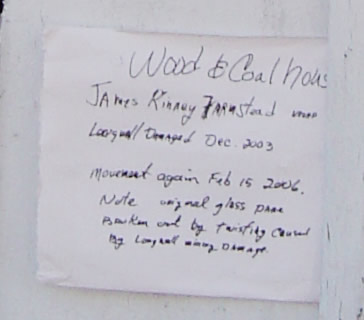 Wood & Coal hous
James Kinney Farmstead
Longwall Damaged Dec. 2003
Movement again Feb 15 2006.
Note original glass pane
Broken out by twisting caused
By Longwall mining Damage.